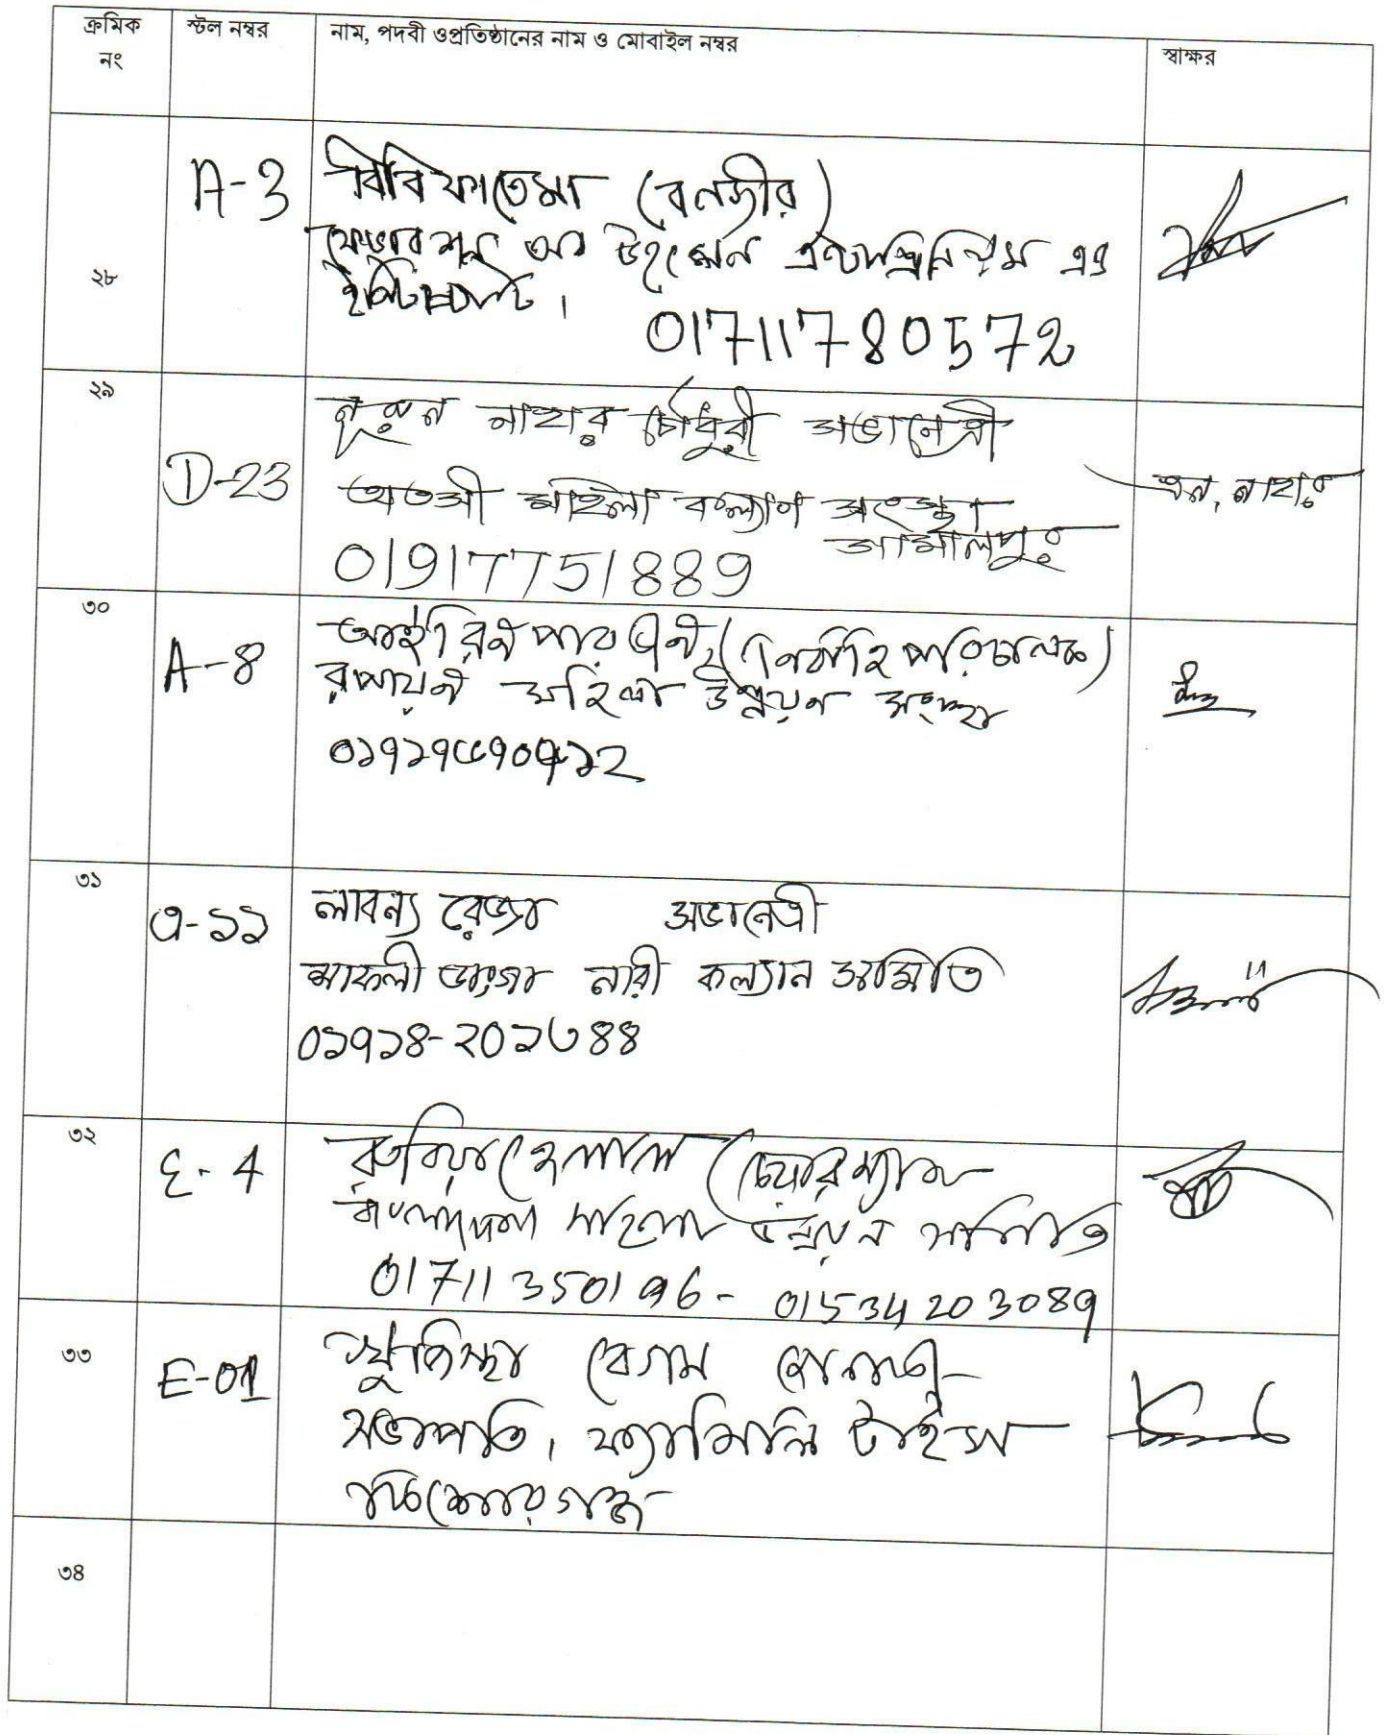 ক্রমিক নং
স্টল নম্বর
নাম, পদবী ওপ্রতিষ্ঠানের নাম ও মোবাইল নম্বর
স্বাক্ষর
২৮
A-3
বিবি ফাতেমা (বনশ্রীর)
অব উইমেন এন্ড
01711780572
২৯
D-23
নূরুন নাহার চৌধুরী সভানেত্রী
অতসী মহিলা কল্যাণ সংস্থা
জামালপুর
01917751889
এন, নাহার
৩০
A-8
আইরিন পারভীন, (নির্বাহি পরিচালক)
রূপায়ন মহিলা উন্নয়ন সংস্থা
৩১
লাবন্য রেজা সভানেত্রী
নারী কল্যান সমিতি
০১৭১৪-২০১৬৪৪
৩২
E-4
হেলাল (চেয়ারম্যান
মহিলা উন্নয়ন সমিতি
01711350196- 01534203089
৩৩
E-01
বেগম
সভাপতি, ফ্যামিলি টাইস
কিশোরগঞ্জ
৩৪